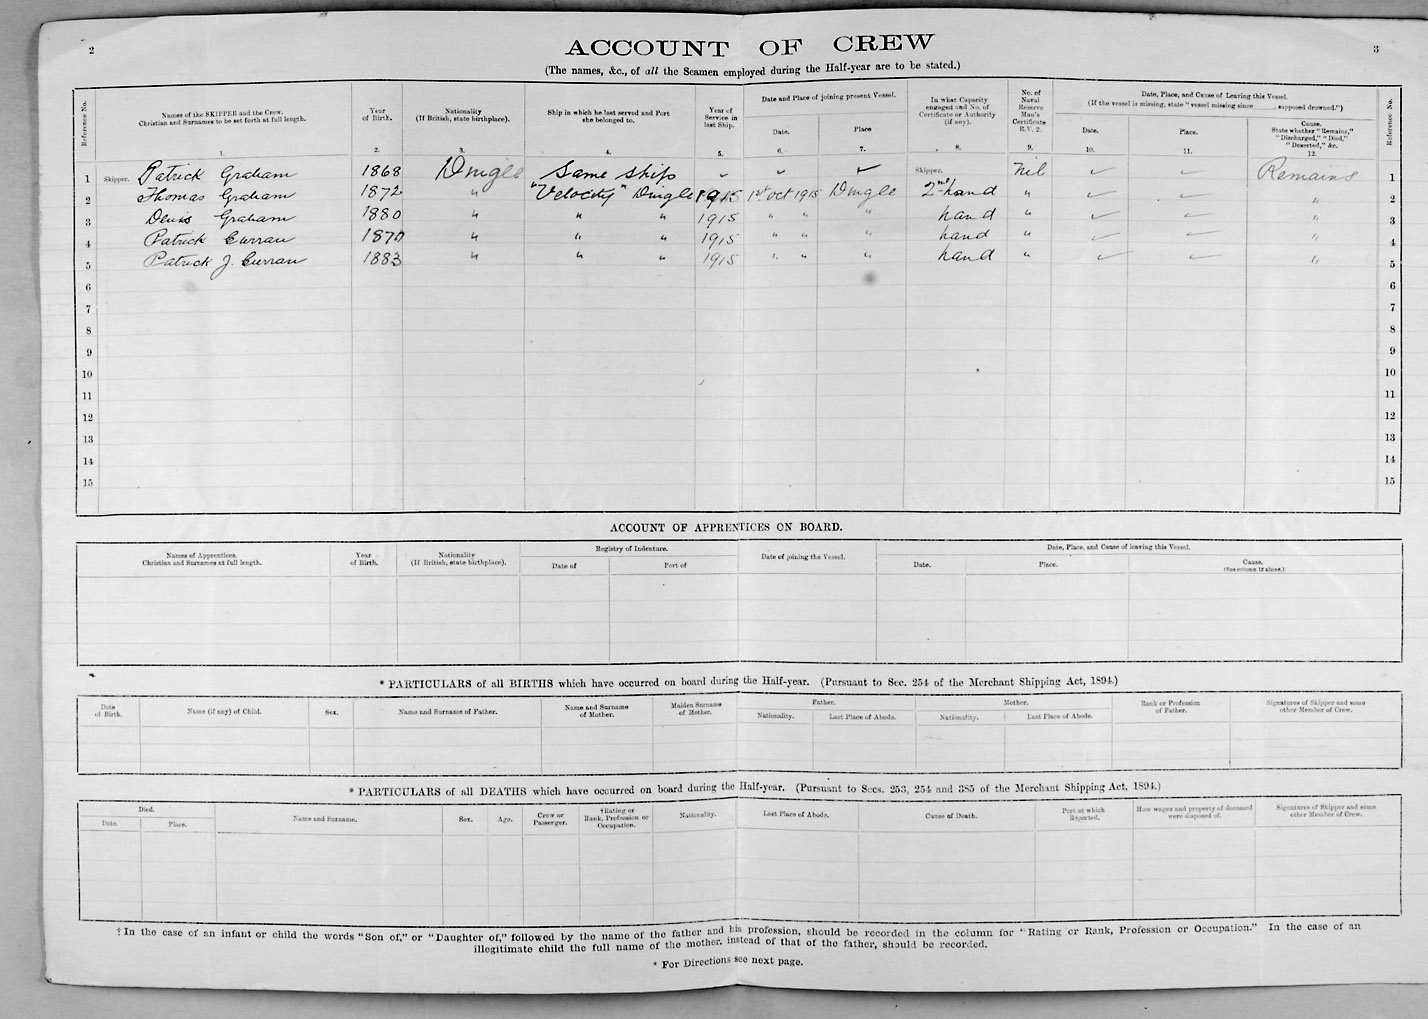 2
3
ACCOUNT OF CREW
(The names, &c., of all the Seamen employed during the Half-year are to be stated.)
Reference No.
Names of the SKIPPER and the Crew.
Christian and Surnames to be set forth at full length.
1.
Year
of Birth.
2.
Nationality
(If British, state birthplace).
3.
Ship in which he last served and Port
she belonged to.
4.
Year of
Service in
last Ship.
5.
Date and Place of joining present Vessel.
Date.
6.
Place
7.
In what Capacity
engaged and No. of
Certificate or Authority
(if any).
8.
No. of
Naval
Reserve
Man's
Certificate
R.V. 2.
9.
Date, Place, and Cause of Leaving this Vessel.
(If the vessel is missing, state "vessel missing since ______, supposed drowned.")
Date.
10.
Place.
11.
Cause.
State whether "Remains,"
"Discharged," "Died,"
"Deserted," &c.
12.
Reference No.
1 Skipper. Patrick Graham 1868 Dingle Same Ship ✓ ✓ ✓ Skipper. Nil ✓ ✓ Remains 1
2 Thomas Graham 1872 " "Velocity" Dingle 1915 1st Oct 1915 Dingle 2nd hand " ✓ ✓ " 2
3 Denis Graham 1880 " " " 1915 " " " hand " ✓ ✓ " 3
4 Patrick Curran 1870 " " " 1915 " " " hand " ✓ ✓ " 4
5 Patrick J. Curran 1883 " " " 1915 " " " hand " ✓ ✓ " 5
6 6
7 7
8 8
9 9
10 10
11 11
12 12
13 13
14 14
15 15
ACCOUNT OF APPRENTICES ON BOARD.
Names of Apprentices.
Christian and Surnames at full length.
Year
of Birth.
Nationality
(If British, state birthplace).
Registry of Indenture.
Date of
Port of
Date of joining the Vessel.
Date, Place, and Cause of leaving this Vessel.
Date.
Place.
Cause.
(See column 12 above.)
* PARTICULARS of all BIRTHS which have occurred on board during the Half-year. (Pursuant to Sec. 254 of the Merchant Shipping Act, 1894.)
Date
of Birth.
Name (if any) of Child.
Sex.
Name and Surname of Father.
Name and Surname
of Mother.
Maiden Surname
of Mother.
Father.
Nationality.
Last Place of Abode.
Mother.
Nationality.
Last Place of Abode.
Rank or Profession
of Father.
Signatures of Skipper and some
other Member of Crew.
* PARTICULARS of all DEATHS which have occurred on board during the Half-year. (Pursuant to Secs. 253, 254 and 385 of the Merchant Shipping Act, 1894.)
Died.
Date.
Place.
Name and Surname.
Sex.
Age.
Crew or
Passenger.
†Rating or
Rank, Profession or
Occupation.
Nationality.
Last Place of Abode.
Cause of Death.
Port at which
Reported.
How wages and property of deceased
were disposed of.
Signatures of Skipper and some
other Member of Crew.
† In the case of an infant or child the words "Son of," or "Daughter of," followed by the name of the father and his profession, should be recorded in the column for "Rating or Rank, Profession or Occupation." In the case of an
illegitimate child the full name of the mother, instead of that of the father, should be recorded.
* For Directions see next page.